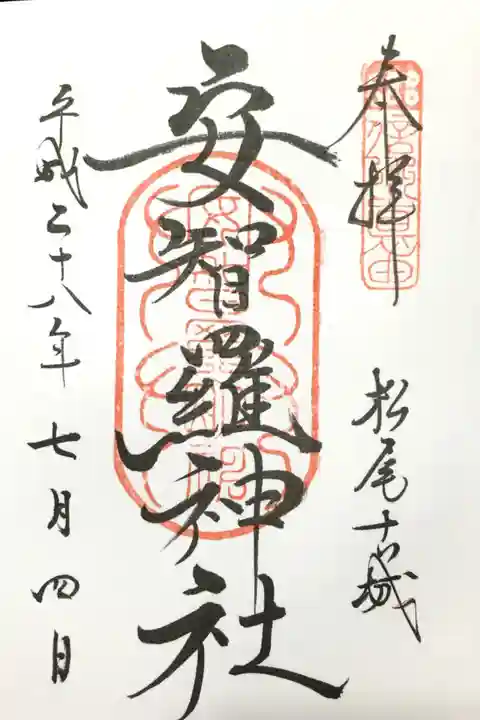 奉拝
松尾十八城
安智羅神社
平成二十八年七月四日